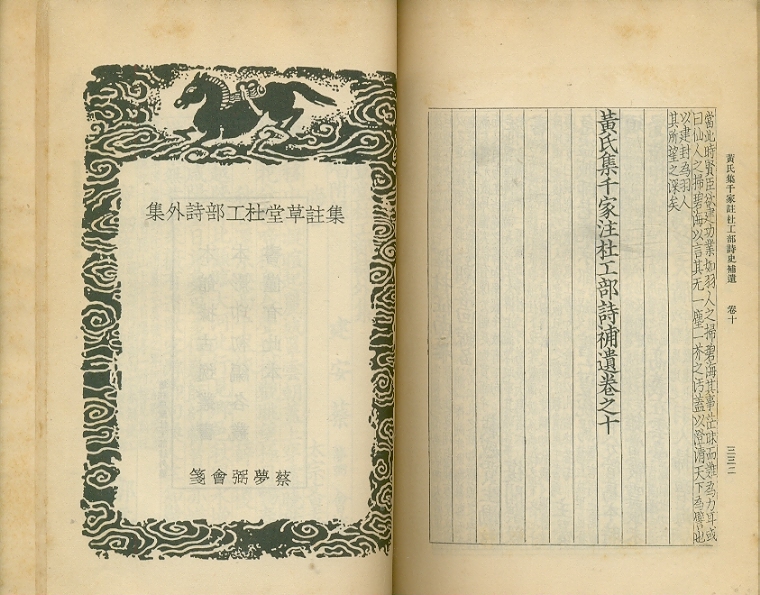 黃氏集千家註杜工部詩史補遺 卷十 三三二
當此時賢臣欲建功業如羽人之掃碧海其事茫昧而難為力耳或
曰仙人之掃碧海以言其无一塵一芥之汚蓋以澄清天下為也
以建封為羽人
其所望之深矣
黃氏集千家注杜工部詩補遺卷之十
集註草堂杜工部詩外集
蔡夢弼會箋